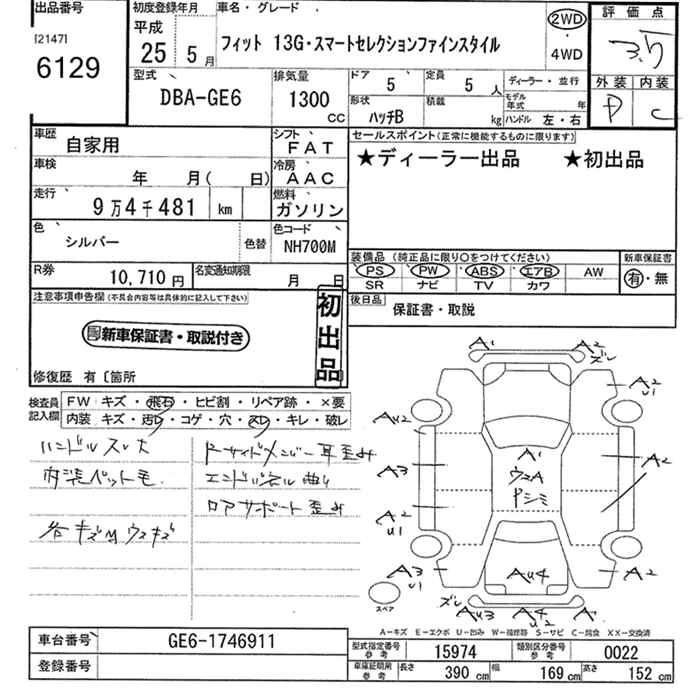 出品番号
[2147]
6129
初度登録年月
平成
25 5 月
車名・グレード
フィット 13G・スマートセレクションファインスタイル
2WD
・
4WD
評価点
3.5
外装 内装
D C
型式
DBA-GE6
排気量
1300
CC
ドア
5
定員
5 人
形状
ハッチB
積載
kg
ディーラー・並行
モデル年式 年
ハンドル 左・右
車歴
自家用
シフト
FAT
車検
年 月( 日)
冷房
AAC
走行
9万4千481 km
燃料
ガソリン
色
シルバー
色替
色コード
NH700M
R券
10,710 円
名変通知期限
月 日
セールスポイント(正常に機能するものに限ります)
★ディーラー出品 ★初出品
装備品 (純正品に限り○をつけてください)
PS PW ABS エアB AW
SR ナビ TV カワ
新車保証書
有・無
後日品
保証書・取説
注意事項申告欄(不具合内容等は具体的に記入して下さい)
新車保証書・取説付き
初出品
修復歴 有〔箇所
検査員記入欄
FW キズ・飛石・ヒビ割・リペア跡・×要
内装 キズ・汚レ・コゲ・穴・スレ・キレ・破レ
ハンドルスレ大
内装ペット毛
各キズMウスキズ
ドーサイドメンバー耳歪み
エンドパネル曲り
ロアサポート歪み
A1
A2
ズレ
A2
U1
AU2
A3
A1
ウスA
Pシミ
A2
A2
U1
A3
U1
AU4
A2
ズレ
AU3
A4
U2
A1
スペア
A-キズ E-エクボ U-凹み W-補修跡 S-サビ C-腐食 XX-交換済
車台番号
GE6-1746911
登録番号
型式指定番号
参考
15974
類別区分番号
参考
0022
車庫証明用
参考
長さ 390 cm 幅 169 cm 高さ 152 cm